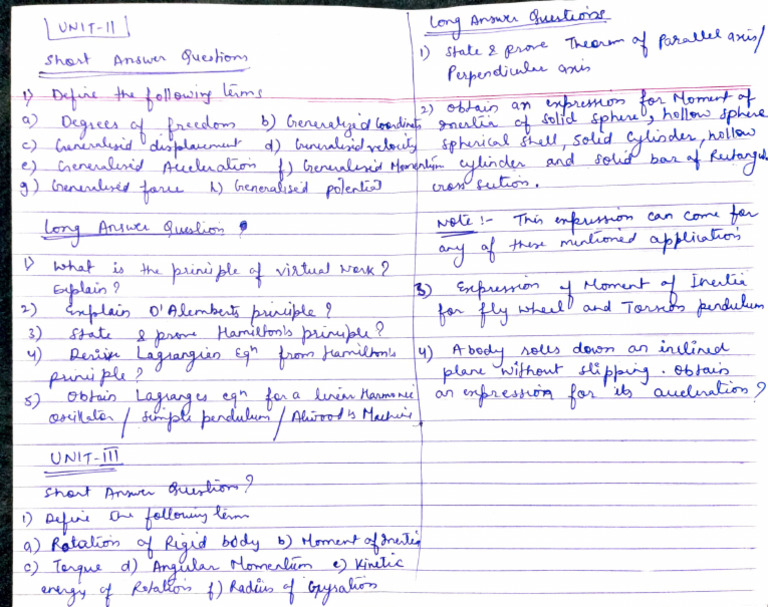 UNIT-II
Short Answer Questions
1) Define the following terms
a) Degrees of freedom b) Generalized Coordinates
c) Generalised displacement d) Generalised velocity
e) Generalised Acceleration f) Generalised Momentum
g) Generalised force h) Generalised potential
Long Answer Question ?
1) What is the principle of virtual work?
Explain?
2) Explain D'Alemberts principle?
3) State & prove Hamilton's principle?
4) Derive Lagrangies Eqn from Hamilton's
principle?
5) Obtain Lagranges eqn for a linear Harmonic
Oscillator / simple pendulum / Atwood's Machine
UNIT-III
Short Answer Question?
1) Define the following term
a) Rotation of Rigid body b) Moment of Inertia
c) Torque d) Angular Momentum e) Kinetic
energy of Rotation f) Radius of Gyration
Long Answer Questions
1) State & prove Theorem of Parallel axis/
Perpendicular axis
2) Obtain an expression for Moment of
Inertia of solid sphere, hollow sphere
spherical shell, solid cylinder, hollow
cylinder and solid bar of Rectangular
cross section.
Note:- This expression can come for
any of these mentioned application
3) Expression of Moment of Inertia
for fly wheel and Torsion pendulum
4) A body rolls down an inclined
plane without slipping. Obtain
an expression for its acceleration?